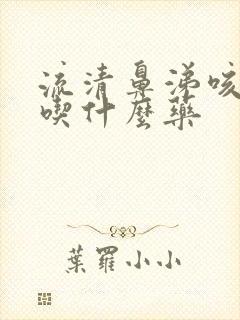 流清鼻涕咳
喫什麼藥
葉羅小小